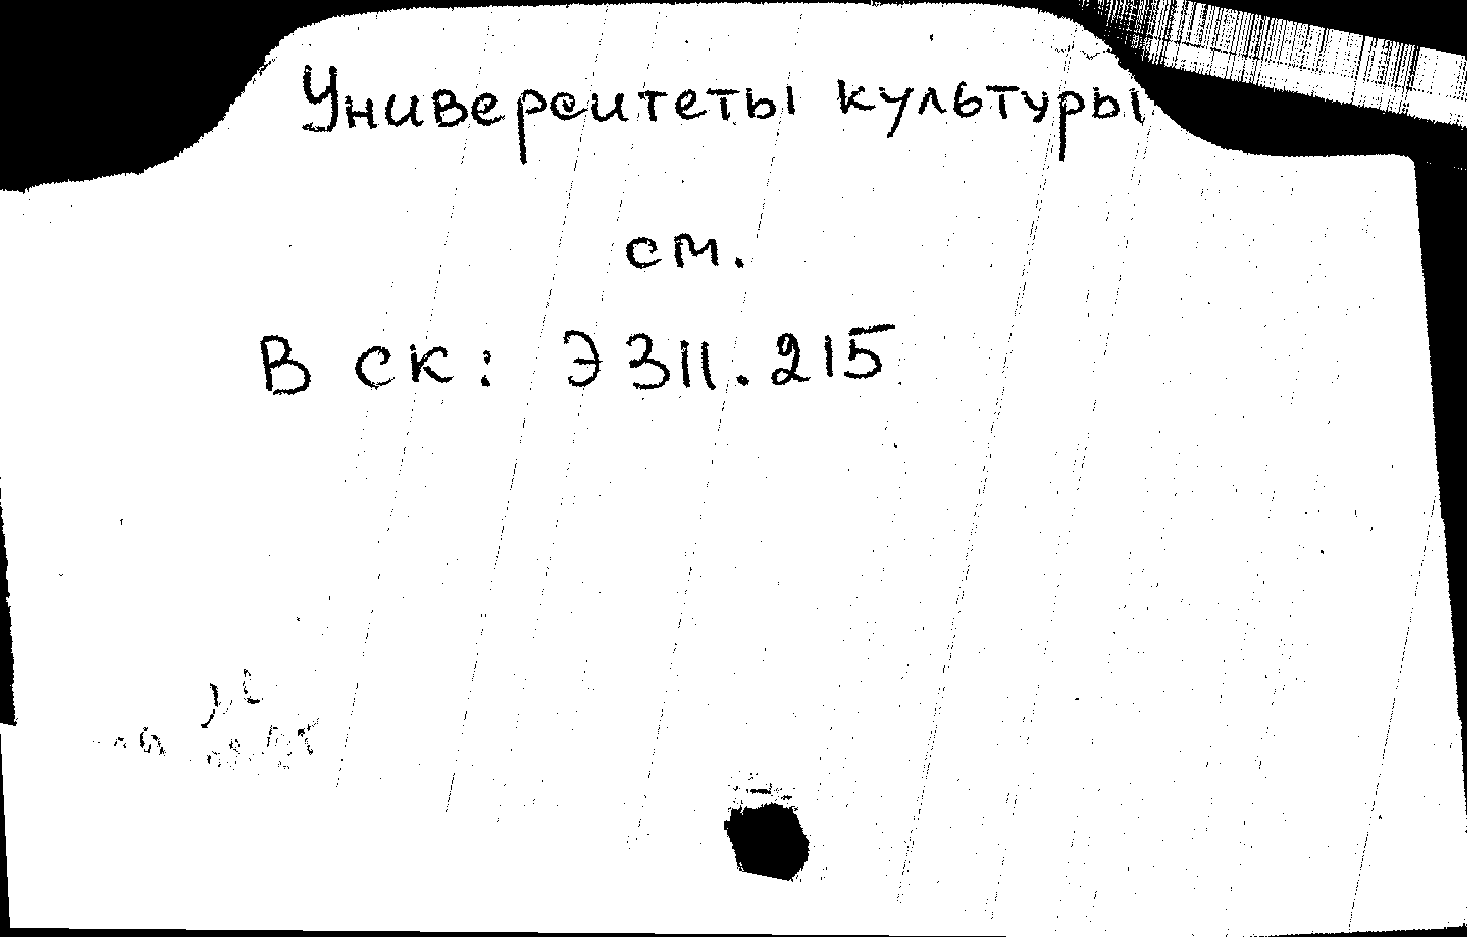 Университеты культуры
см.
В ск: Э 311.215